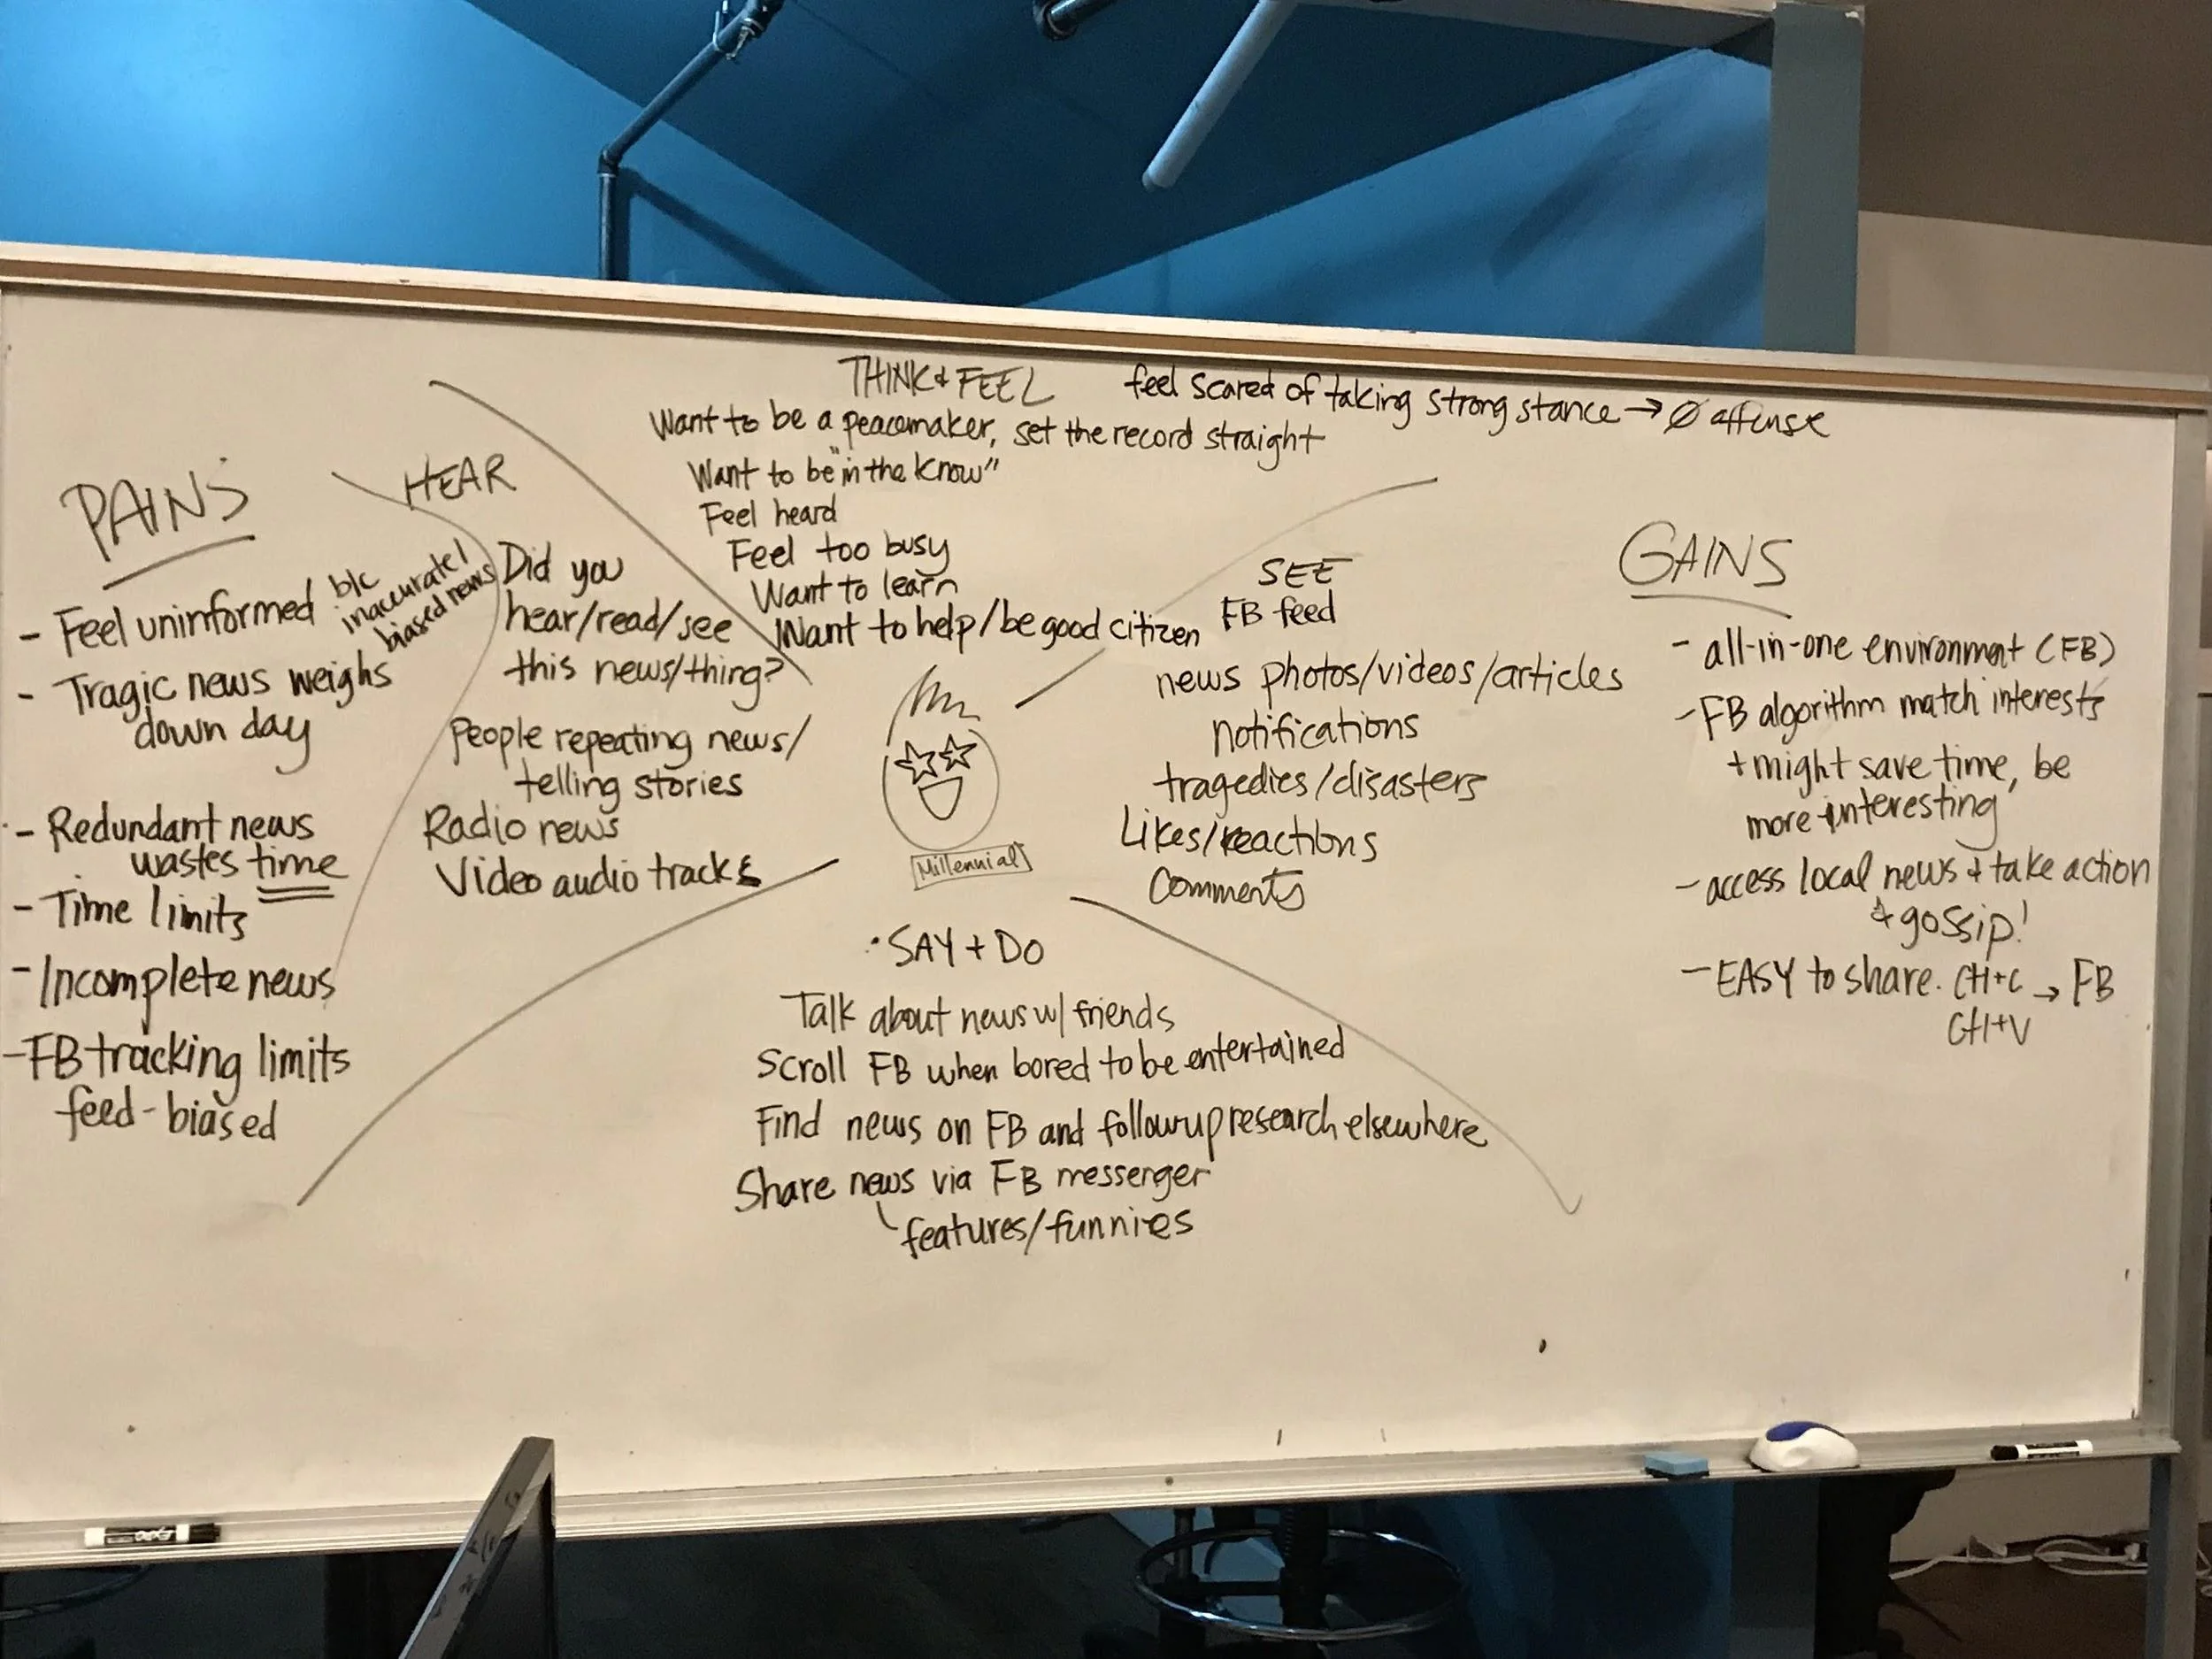 THINK & FEEL
feel scared of taking strong stance → Ø affense
Want to be a peacemaker, set the record straight
Want to be "in the know"
Feel heard
Feel too busy
Want to learn
Want to help/be good citizen
PAINS
- Feel uninformed b/c
inaccurate/
biased news
- Tragic news weighs
down day
- Redundant news
wastes time
- Time limits
- Incomplete news
- FB tracking limits
feed - biased
HEAR
Did you
hear/read/see
this news/thing?
People repeating news/
telling stories
Radio news
Video audio tracks
Millennial
SEE
FB feed
news photos/videos/articles
notifications
tragedies/disasters
Likes/reactions
Comments
SAY + DO
Talk about news w/ friends
Scroll FB when bored to be entertained
Find news on FB and followup research elsewhere
Share news via FB messenger
features/funnies
GAINS
- all-in-one environment (FB)
- FB algorithm match interests
+ might save time, be
more interesting
- access local news & take action
& gossip!
- EASY to share. Ctl+C → FB
Ctl+V
EXPO